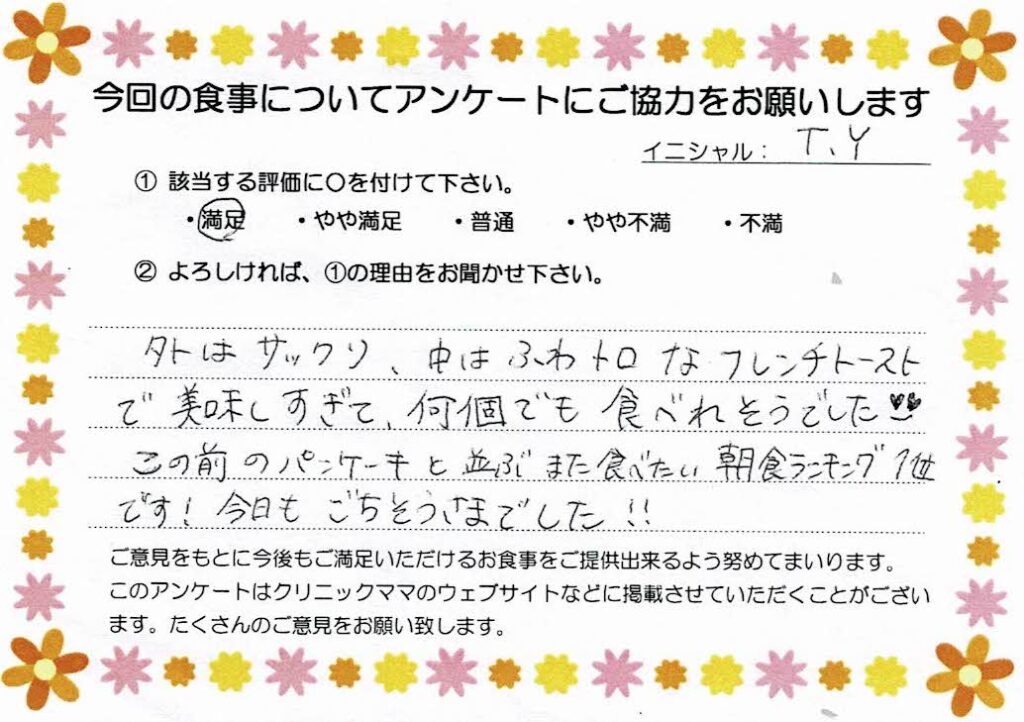 今回の食事についてアンケートにご協力をお願いします
イニシャル： T.Y
① 該当する評価に〇を付けて下さい。
・満足 ・やや満足 ・普通 ・やや不満 ・不満
② よろしければ、①の理由をお聞かせ下さい。
外はサックリ、中はふわトロなフレンチトースト
で美味しすぎて、何個でも食べれそうでした♥♥
この前のパンケーキと並ぶまた食べたい朝食ランキング1位
です！今日もごちそうさまでした！！
ご意見をもとに今後もご満足いただけるお食事をご提供出来るよう努めてまいります。
このアンケートはクリニックママのウェブサイトなどに掲載させていただくことがござい
ます。たくさんのご意見をお願い致します。